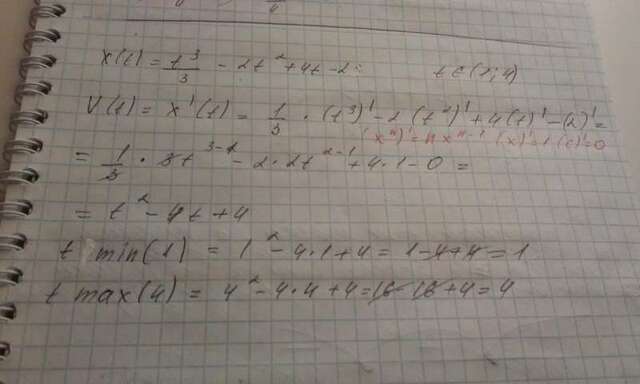 x(t) = t³/3 - 2t² + 4t - 2; t ∈ (1; 4)
V(t) = x'(t) = 1/3 · (t³)' - 2(t²)' + 4(t)' - (2)' =
(xⁿ)' = nxⁿ⁻¹ (x)' = 1 (c)' = 0
= 1/3 · 3t³⁻¹ - 2 · 2t²⁻¹ + 4 · 1 - 0 =
= t² - 4t + 4
t min(1) = 1² - 4·1 + 4 = 1 - 4 + 4 = 1
t max(4) = 4² - 4·4 + 4 = 16 - 16 + 4 = 4